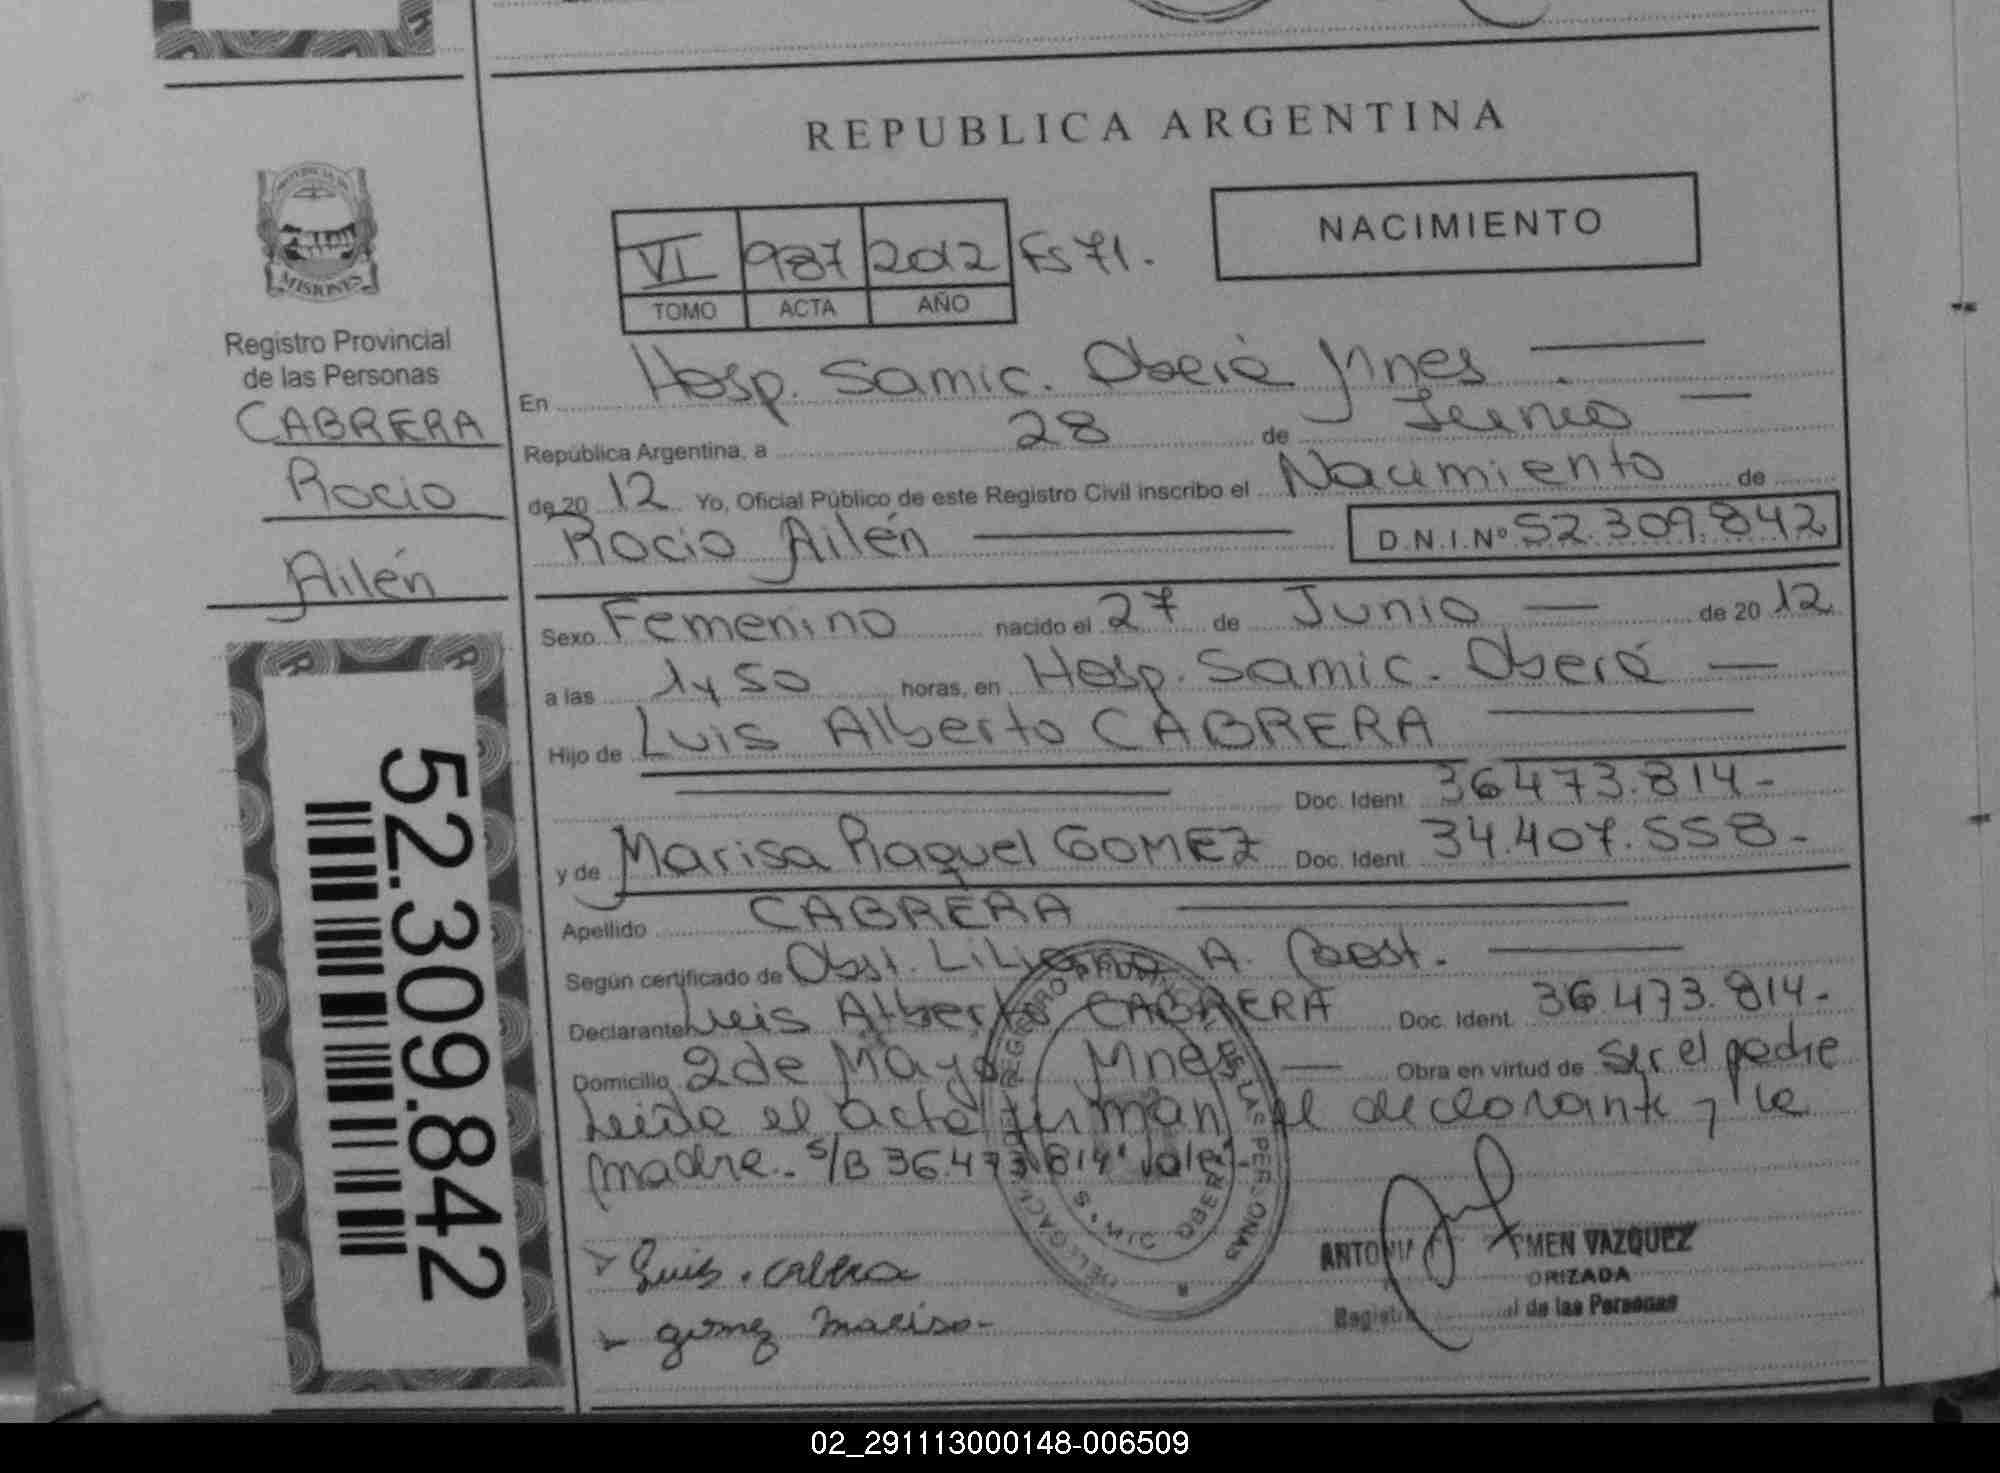 REPUBLICA ARGENTINA
PROVINCIA DE
MISIONES
Registro Provincial
de las Personas
CABRERA
Rocio
Ailén
52.309.842
VI 987 2012 Fs 71.
TOMO ACTA AÑO
NACIMIENTO
En Hosp. Samic. Oberá Mnes
República Argentina, a 28 de Junio
de 20 12 Yo, Oficial Público de este Registro Civil inscribo el Nacimiento de
Rocio Ailén D.N.I.Nº 52.309.842
Sexo Femenino nacido el 27 de Junio de 20 12
a las 1y 50 horas, en Hosp. Samic. Oberá
Hijo de Luis Alberto CABRERA
Doc. Ident. 36473.814-
y de Marisa Raquel GOMEZ Doc. Ident. 34.407.558-
Apellido CABRERA
Según certificado de Obst. Liliana A.
Declarante Luis Alberto CABRERA Doc. Ident. 36.473.814-
Domicilio 2 de Mayo Mnes Obra en virtud de ser el padre
Leida el acta firman el declarante y la
madre.- s/B 36.473.814 "vale"-
Luis . cabrera
gomez marisa-
DE LAS PERSONAS
OBERA
VAZQUEZ
de las Personas
02_291113000148-006509